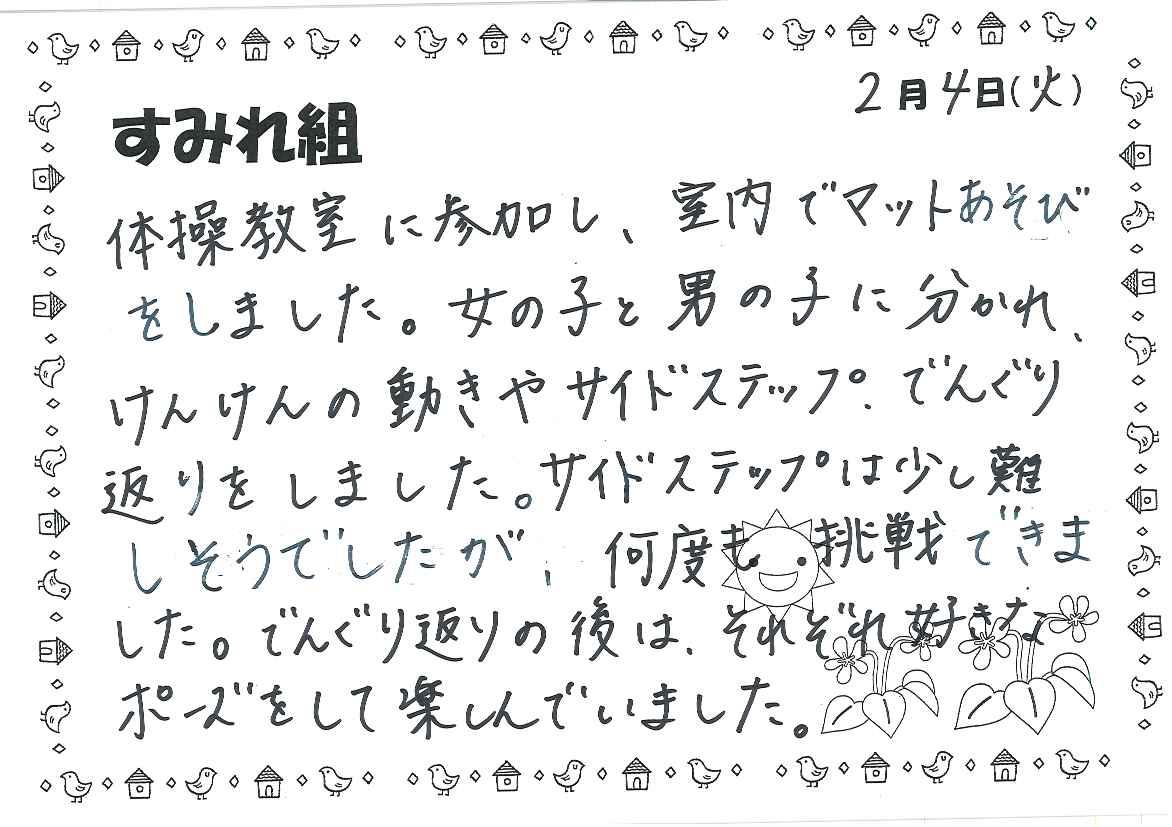 2月4日(火)
すみれ組
体操教室に参加し、室内でマットあそび
をしました。女の子と男の子に分かれ、
けんけんの動きやサイドステップ、でんぐり
返りをしました。サイドステップは少し難
しそうでしたが、何度も挑戦できま
した。でんぐり返りの後は、それぞれ好きな
ポーズをして楽しんでいました。